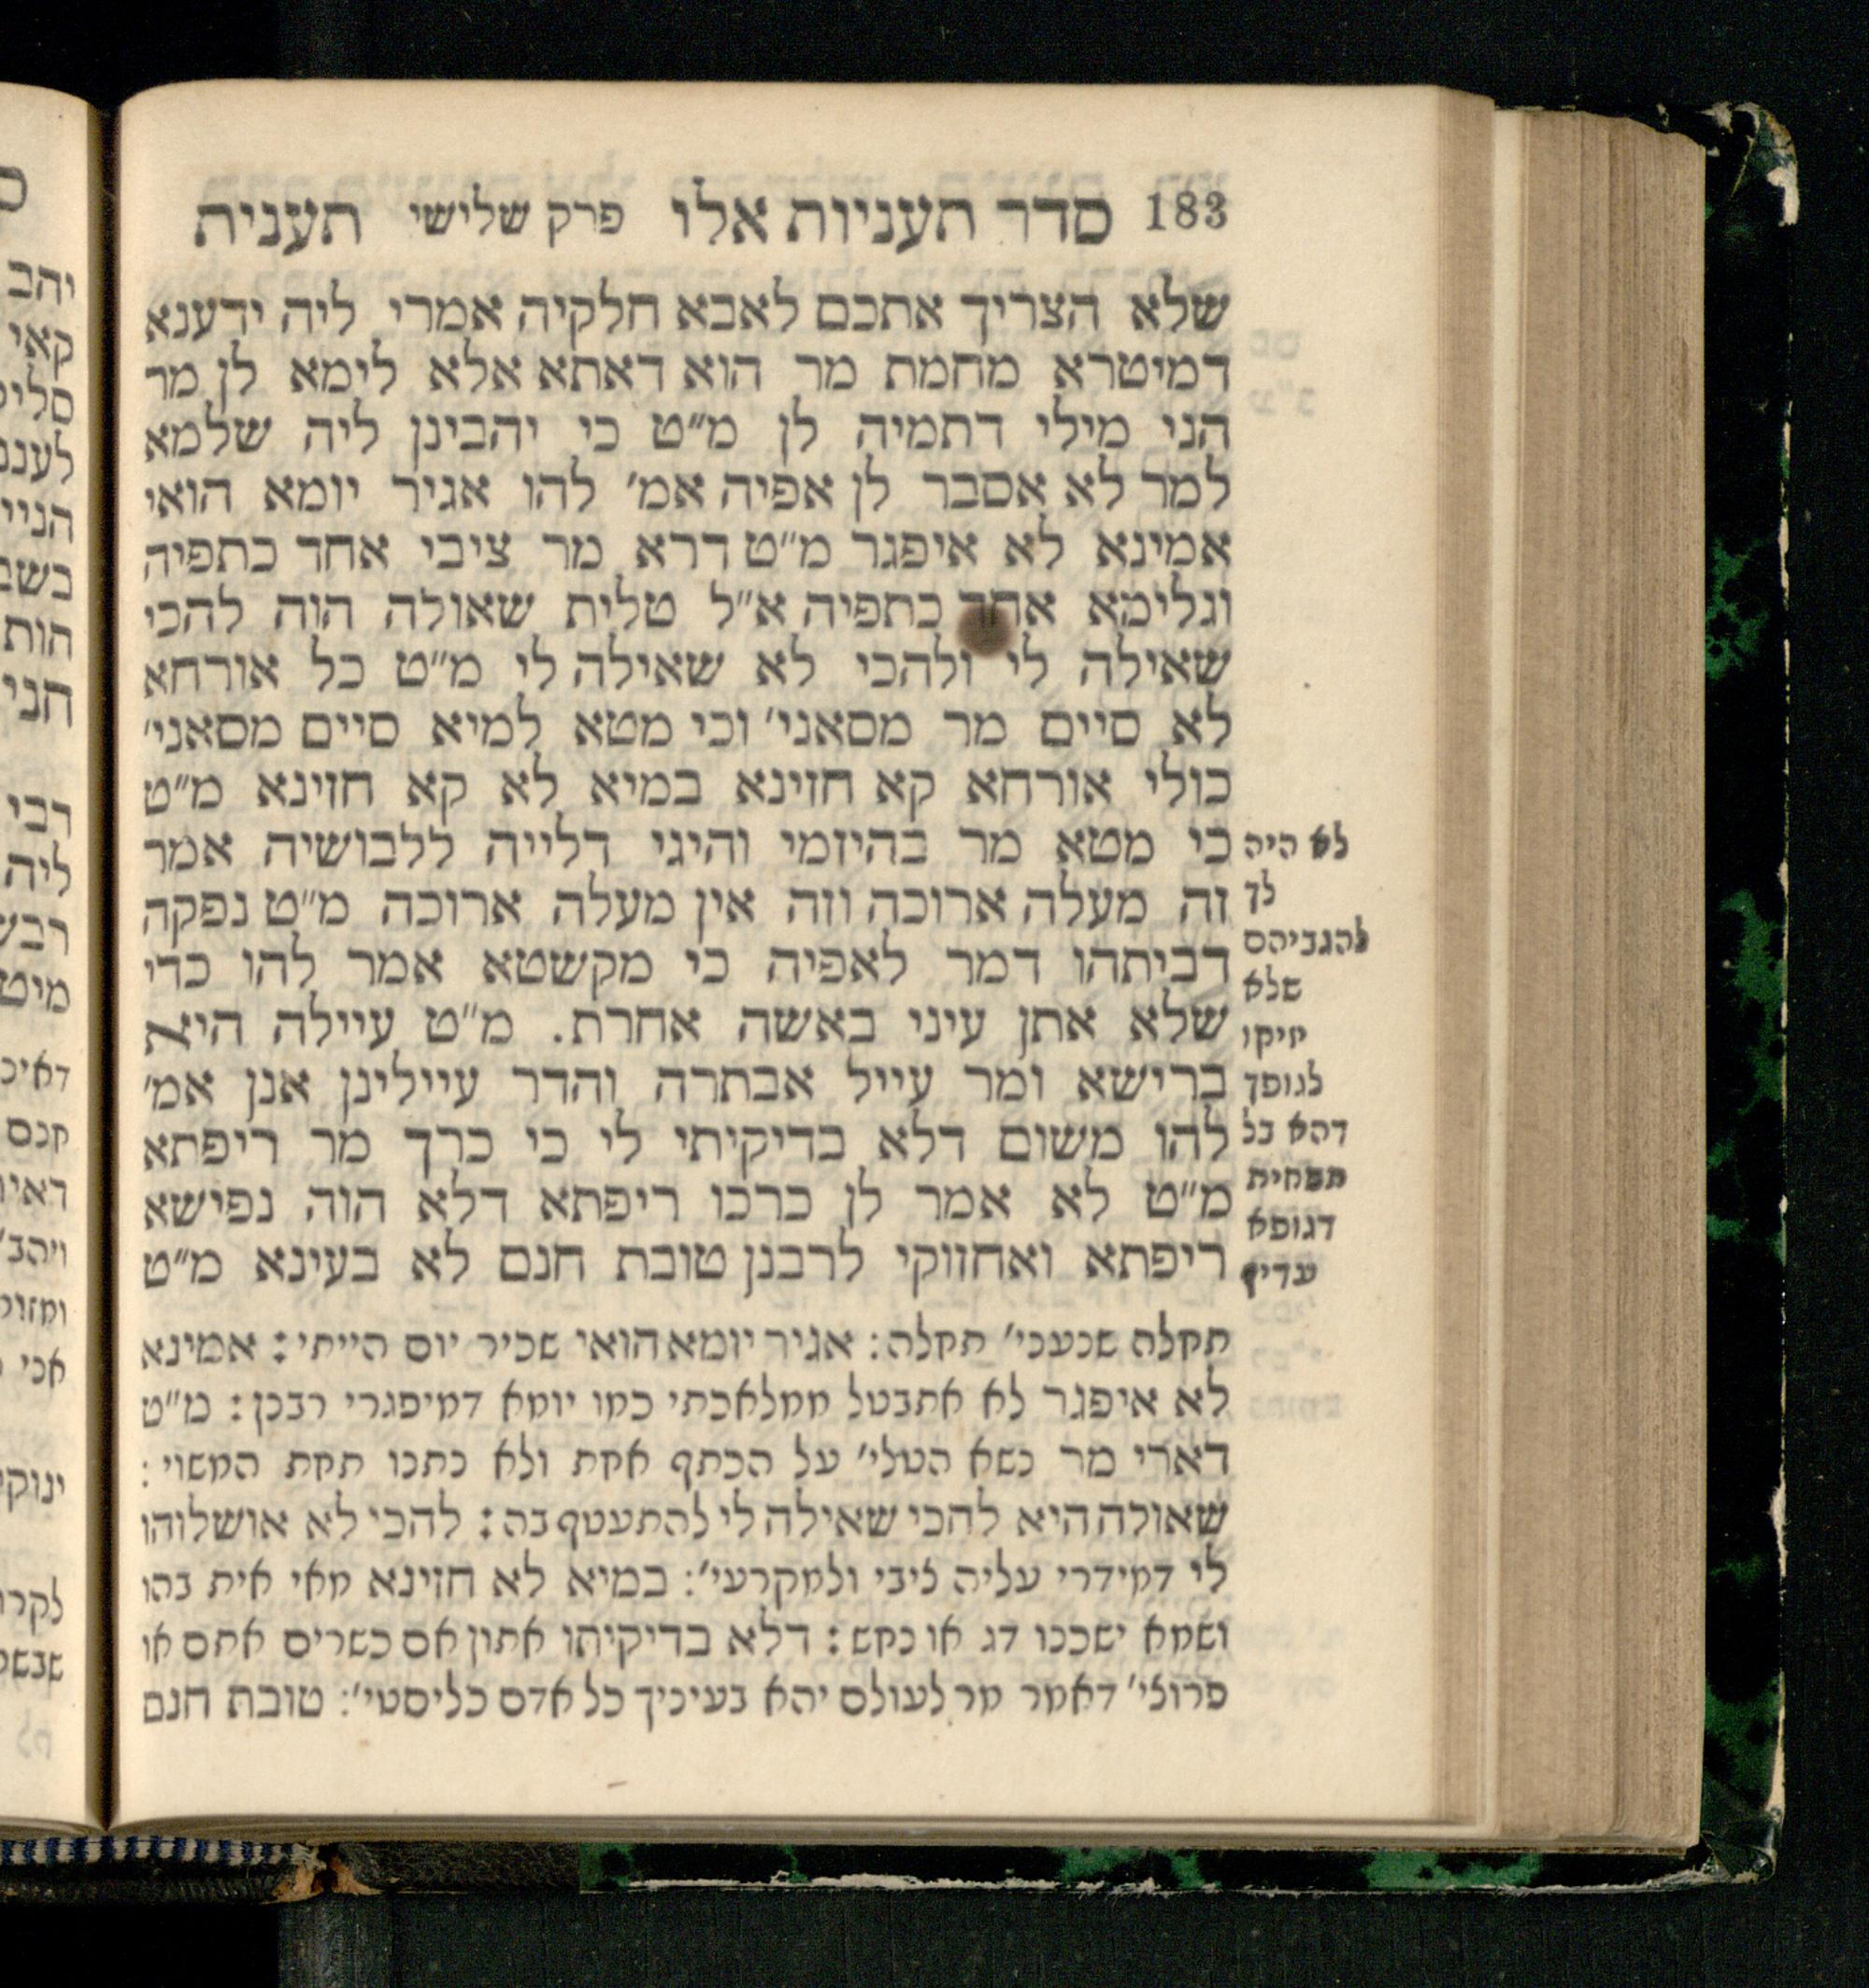 183 סדר תעניות אלו פרק שלישי תענית
שלא הצריך אתכם לאבא חלקיה אמרי ליה ידענא
דמיטרא מחמת מר הוא דאתא אלא לימא לן מר
הני מילי דתמיה לן מ״ט כי יהבינן ליה שלמא
למר לא אסבר לן אפיה אמ׳ להו אגיר יומא הואי
אמינא לא איפגר מ״ט דרא מר ציבי אחד כתפיה
וגלימא אחד כתפיה א״ל טלית שאולה הוה להכי
שאילה לי ולהכי לא שאילה לי מ״ט כל אורחא
לא סיים מר מסאני׳ וכי מטא למיא סיים מסאני׳
כולי אורחא קא חזינא במיא לא קא חזינא מ״ט
כי מטא מר בהיזמי והיגי דלייה ללבושיה אמר
זה מעלה ארוכה וזה אין מעלה ארוכה מ״ט נפקה
דביתהו דמר לאפיה כי מקשטא אמר להו כדי
שלא אתן עיני באשה אחרת. מ״ט עיילה היא
ברישא ומר עייל אבתרה והדר עיילינן אנן אמ׳
להו משום דלא בדיקיתי לי כי כרך מר ריפתא
מ״ט לא אמר לן כרכו ריפתא דלא הוה נפישא
ריפתא ואחזוקי לרבנן טובת חנם לא בעינא מ״ט
לא היה
לך
להגביהם
שלא
יזיקו
לגופך
דהא כל
תפחית
דגופא
עדיף
תקלה שנענני׳ תקלה: אגיר יומא הואי שכיר יום הייתי: אמינא
לא איפגר לא אתבטל ממלאכתי כמו יומא דמיפגרי רבנן: מ״ט
דארי מר נשא הטלי׳ על הכתף אחת ולא נתנו תחת המשוי:
שאולה היא להכי שאילה לי להתעטף בה: להכי לא אושלוהו
לי דמידרי עליה ציבי ולמקרעי׳: במיא לא חזינא מאי אית בהו
ושמא ישכנו דג או נחש: דלא בדיקיתו אתון אם כשרים אתם או
פרוצי׳ דאמר מר לעולם יהא בעיניך כל אדם כליסטי׳: טובת חנם